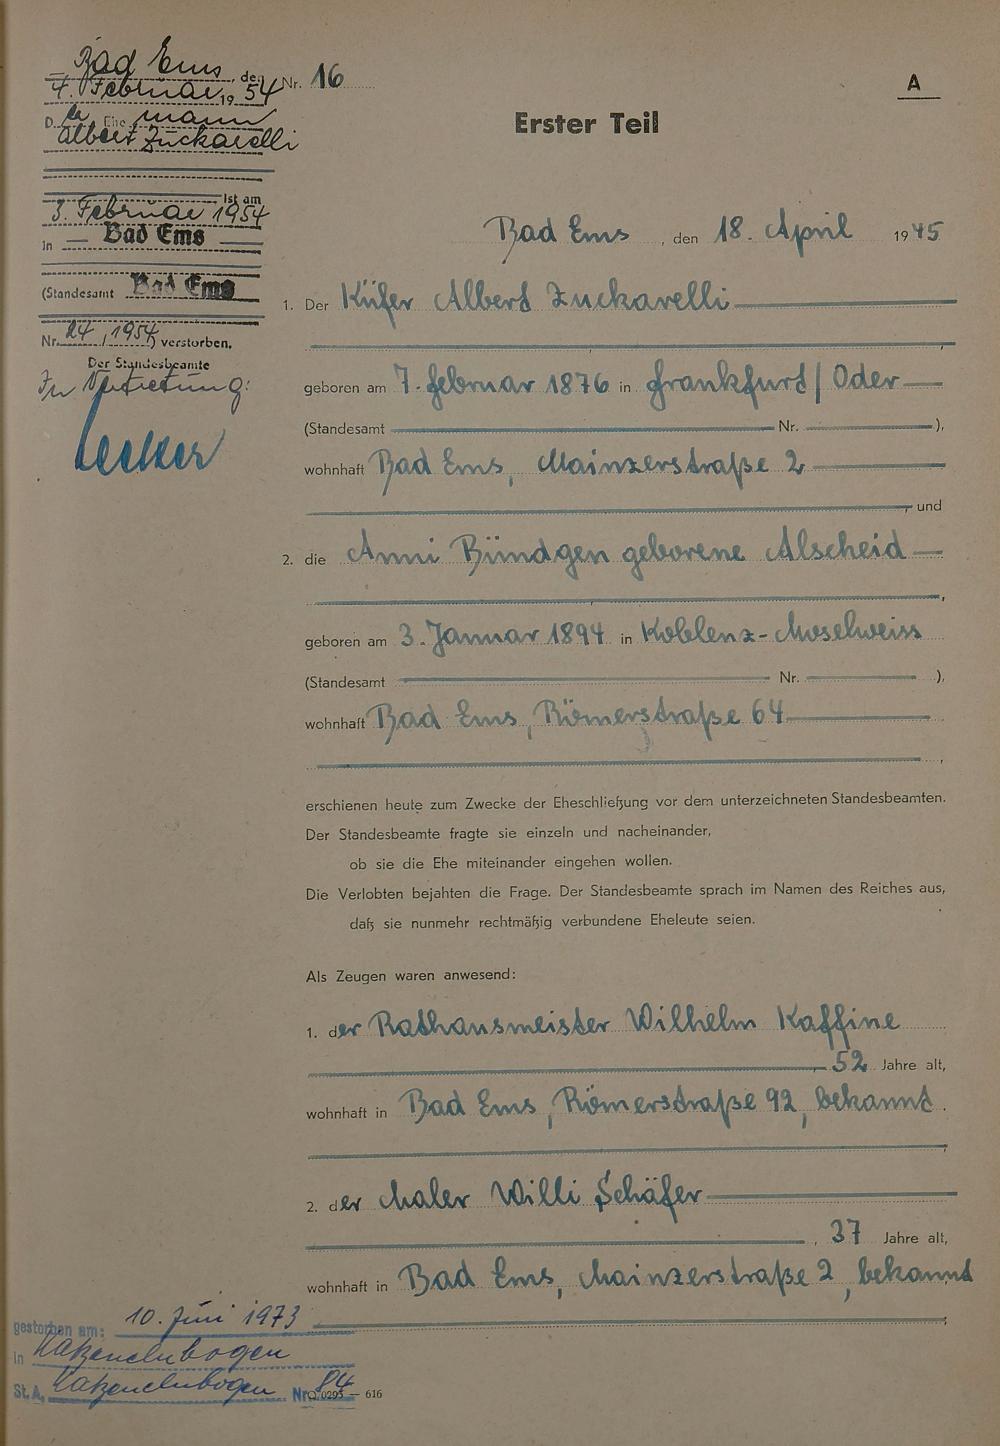 Bad Ems, den
4. Februar 1954
Der Ehemann
Albert Zuckarelli
ist am
3. Februar 1954
in — Bad Ems —
(Standesamt Bad Ems
Nr. 24/1954) verstorben.
Der Standesbeamte
In Vertretung:
Nr. 16
A
Erster Teil
Bad Ems, den 18. April 1945
1. Der Küfer Albert Zuckarelli
geboren am 7. Februar 1876 in Frankfurt/Oder
(Standesamt Nr. ),
wohnhaft Bad Ems, Mainzerstraße 2
, und
2. die Anni Bündgen geborene Alscheid
,
geboren am 3. Januar 1894 in Koblenz-Moselweiss
(Standesamt Nr. ),
wohnhaft Bad Ems, Römerstraße 64
,
erschienen heute zum Zwecke der Eheschließung vor dem unterzeichneten Standesbeamten.
Der Standesbeamte fragte sie einzeln und nacheinander,
ob sie die Ehe miteinander eingehen wollen.
Die Verlobten bejahten die Frage. Der Standesbeamte sprach im Namen des Reiches aus,
daß sie nunmehr rechtmäßig verbundene Eheleute seien.
Als Zeugen waren anwesend:
1. der Rathausmeister Wilhelm Kaffine
, 52 Jahre alt,
wohnhaft in Bad Ems, Römerstraße 92, bekannt.
,
2. der Maler Willi Schäfer
, 37 Jahre alt,
wohnhaft in Bad Ems, Mainzerstraße 2, bekannt
;
gestorben am: 10. Juni 1973
in Katzenelnbogen
St.A. Katzenelnbogen Nr. 84
Q 0293 — 616